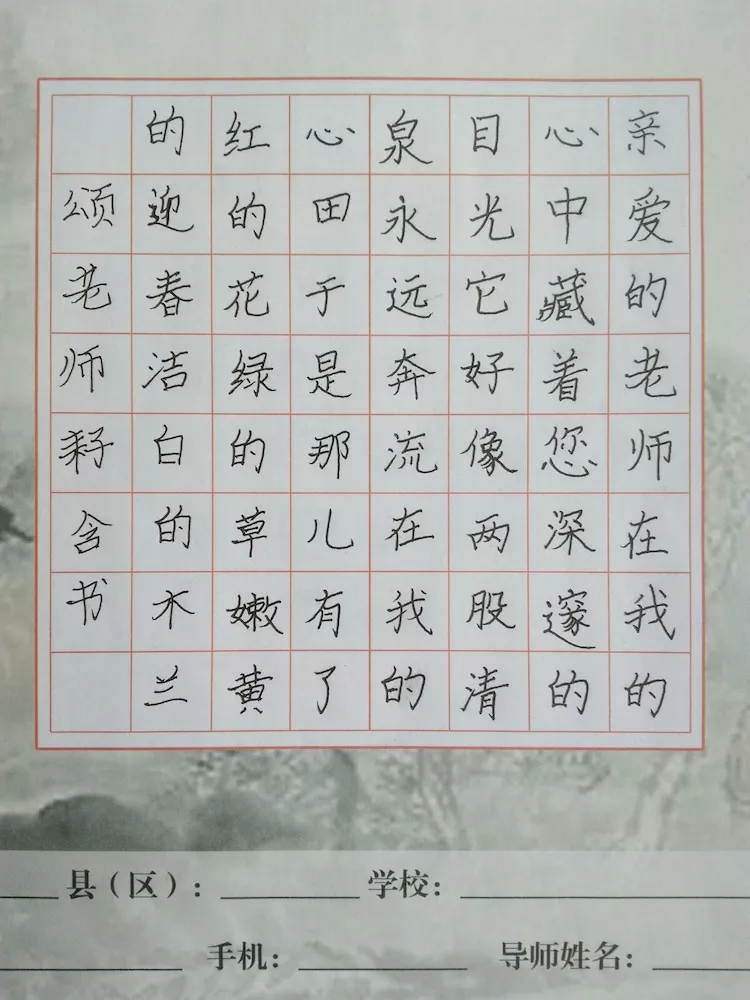 亲爱的老师在我的
心中藏着您深邃的
目光它好像两股清
泉永远奔流在我的
心田于是那儿有了
红的花绿的草嫩黄
的迎春洁白的木兰
颂老师 含书
县（区）： 学校：
手机： 导师姓名：